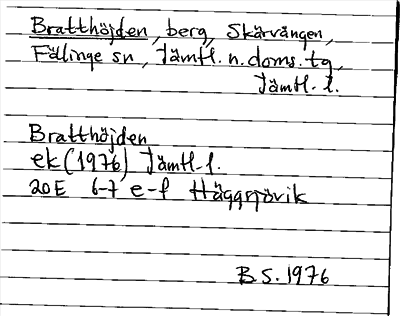 Bratthöjden, berg, Skärvången,
Föllinge sn, Jämtl. n. doms. tg,
Jämtl. l.
Bratthöjden
ek (1976) Jämtl. l.
20E 6-7 e-f Häggsjövik
B S. 1976